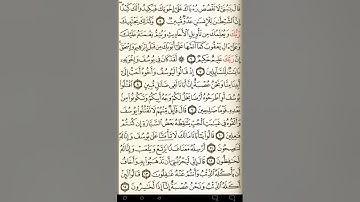 قَالَ يَٰبُنَيَّ لَا تَقۡصُصۡ رُءۡيَاكَ عَلَىٰٓ إِخۡوَتِكَ فَيَكِيدُواْ لَكَ كَيۡدًاۖ
إِنَّ ٱلشَّيۡطَٰنَ لِلۡإِنسَٰنِ عَدُوّٞ مُّبِينٞ ٥ وَكَذَٰلِكَ يَجۡتَبِيكَ
رَبُّكَ وَيُعَلِّمُكَ مِن تَأۡوِيلِ ٱلۡأَحَادِيثِ وَيُتِمُّ نِعۡمَتَهُۥ عَلَيۡكَ
وَعَلَىٰٓ ءَالِ يَعۡقُوبَ كَمَآ أَتَمَّهَا عَلَىٰٓ أَبَوَيۡكَ مِن قَبۡلُ إِبۡرَٰهِيمَ وَإِسۡحَٰقَۚ
إِنَّ رَبَّكَ عَلِيمٌ حَكِيمٞ ٦ ۞ لَّقَدۡ كَانَ فِي يُوسُفَ وَإِخۡوَتِهِۦٓ
ءَايَٰتٞ لِّلسَّآئِلِينَ ٧ إِذۡ قَالُواْ لَيُوسُفُ وَأَخُوهُ أَحَبُّ إِلَىٰٓ
أَبِينَا مِنَّا وَنَحۡنُ عُصۡبَةٌ إِنَّ أَبَانَا لَفِي ضَلَٰلٖ مُّبِينٍ ٨ ٱقۡتُلُواْ
يُوسُفَ أَوِ ٱطۡرَحُوهُ أَرۡضٗا يَخۡلُ لَكُمۡ وَجۡهُ أَبِيكُمۡ وَتَكُونُواْ مِنۢ
بَعۡدِهِۦ قَوۡمٗا صَٰلِحِينَ ٩ قَالَ قَآئِلٞ مِّنۡهُمۡ لَا تَقۡتُلُواْ يُوسُفَ
وَأَلۡقُوهُ فِي غَيَٰبَتِ ٱلۡجُبِّ يَلۡتَقِطۡهُ بَعۡضُ ٱلسَّيَّارَةِ إِن كُنتُمۡ
فَٰعِلِينَ ١٠ قَالُواْ يَٰٓأَبَانَا مَا لَكَ لَا تَأۡمَ۬نَّا عَلَىٰ يُوسُفَ وَإِنَّا لَهُۥ
لَنَٰصِحُونَ ١١ أَرۡسِلۡهُ مَعَنَا غَدٗا يَرۡتَعۡ وَيَلۡعَبۡ وَإِنَّا لَهُۥ
لَحَٰفِظُونَ ١٢ قَالَ إِنِّي لَيَحۡزُنُنِيٓ أَن تَذۡهَبُواْ بِهِۦ وَأَخَافُ
أَن يَأۡكُلَهُ ٱلذِّئۡبُ وَأَنتُمۡ عَنۡهُ غَٰفِلُونَ ١٣ قَالُواْ لَئِنۡ
أَكَلَهُ ٱلذِّئۡبُ وَنَحۡنُ عُصۡبَةٌ إِنَّآ إِذٗا لَّخَٰسِرُونَ ١٤